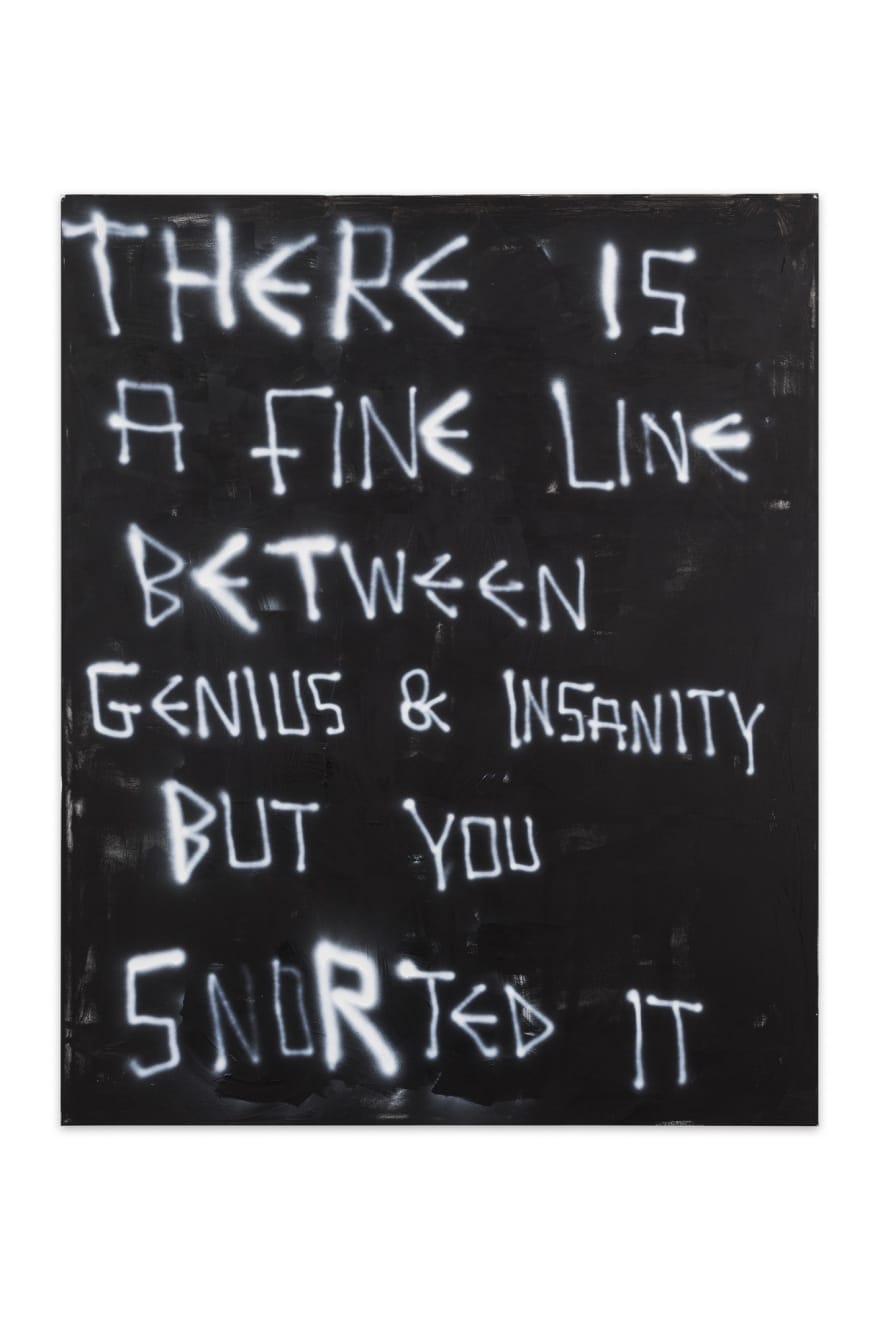 THERE IS
A FINE LINE
BETWEEN
GENIUS & INSANITY
BUT YOU
SNORTED IT